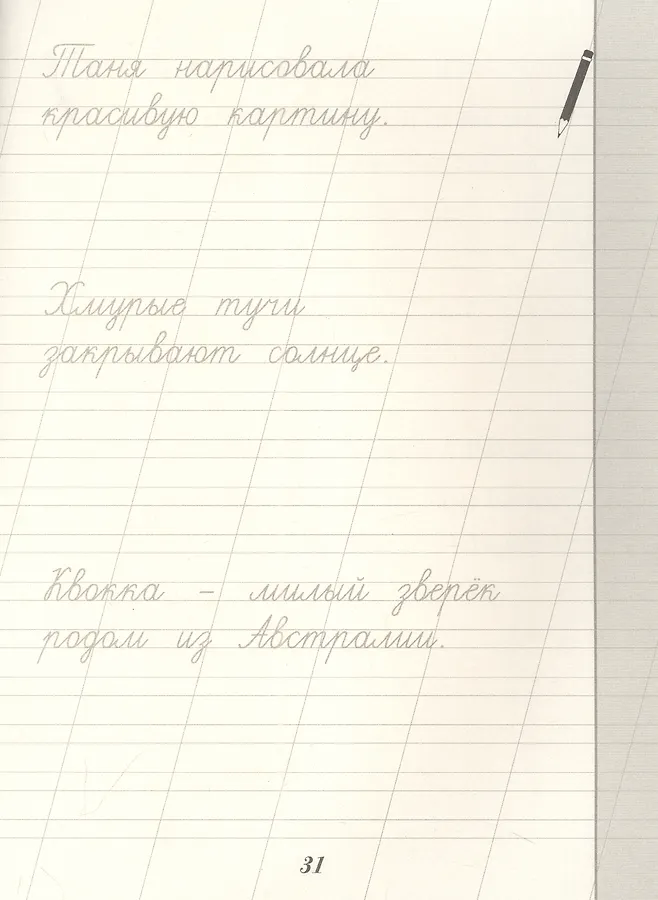 Таня нарисовала
красивую картину.
Хмурые тучи
закрывают солнце.
Квокка – милый зверёк
родом из Австралии.
31